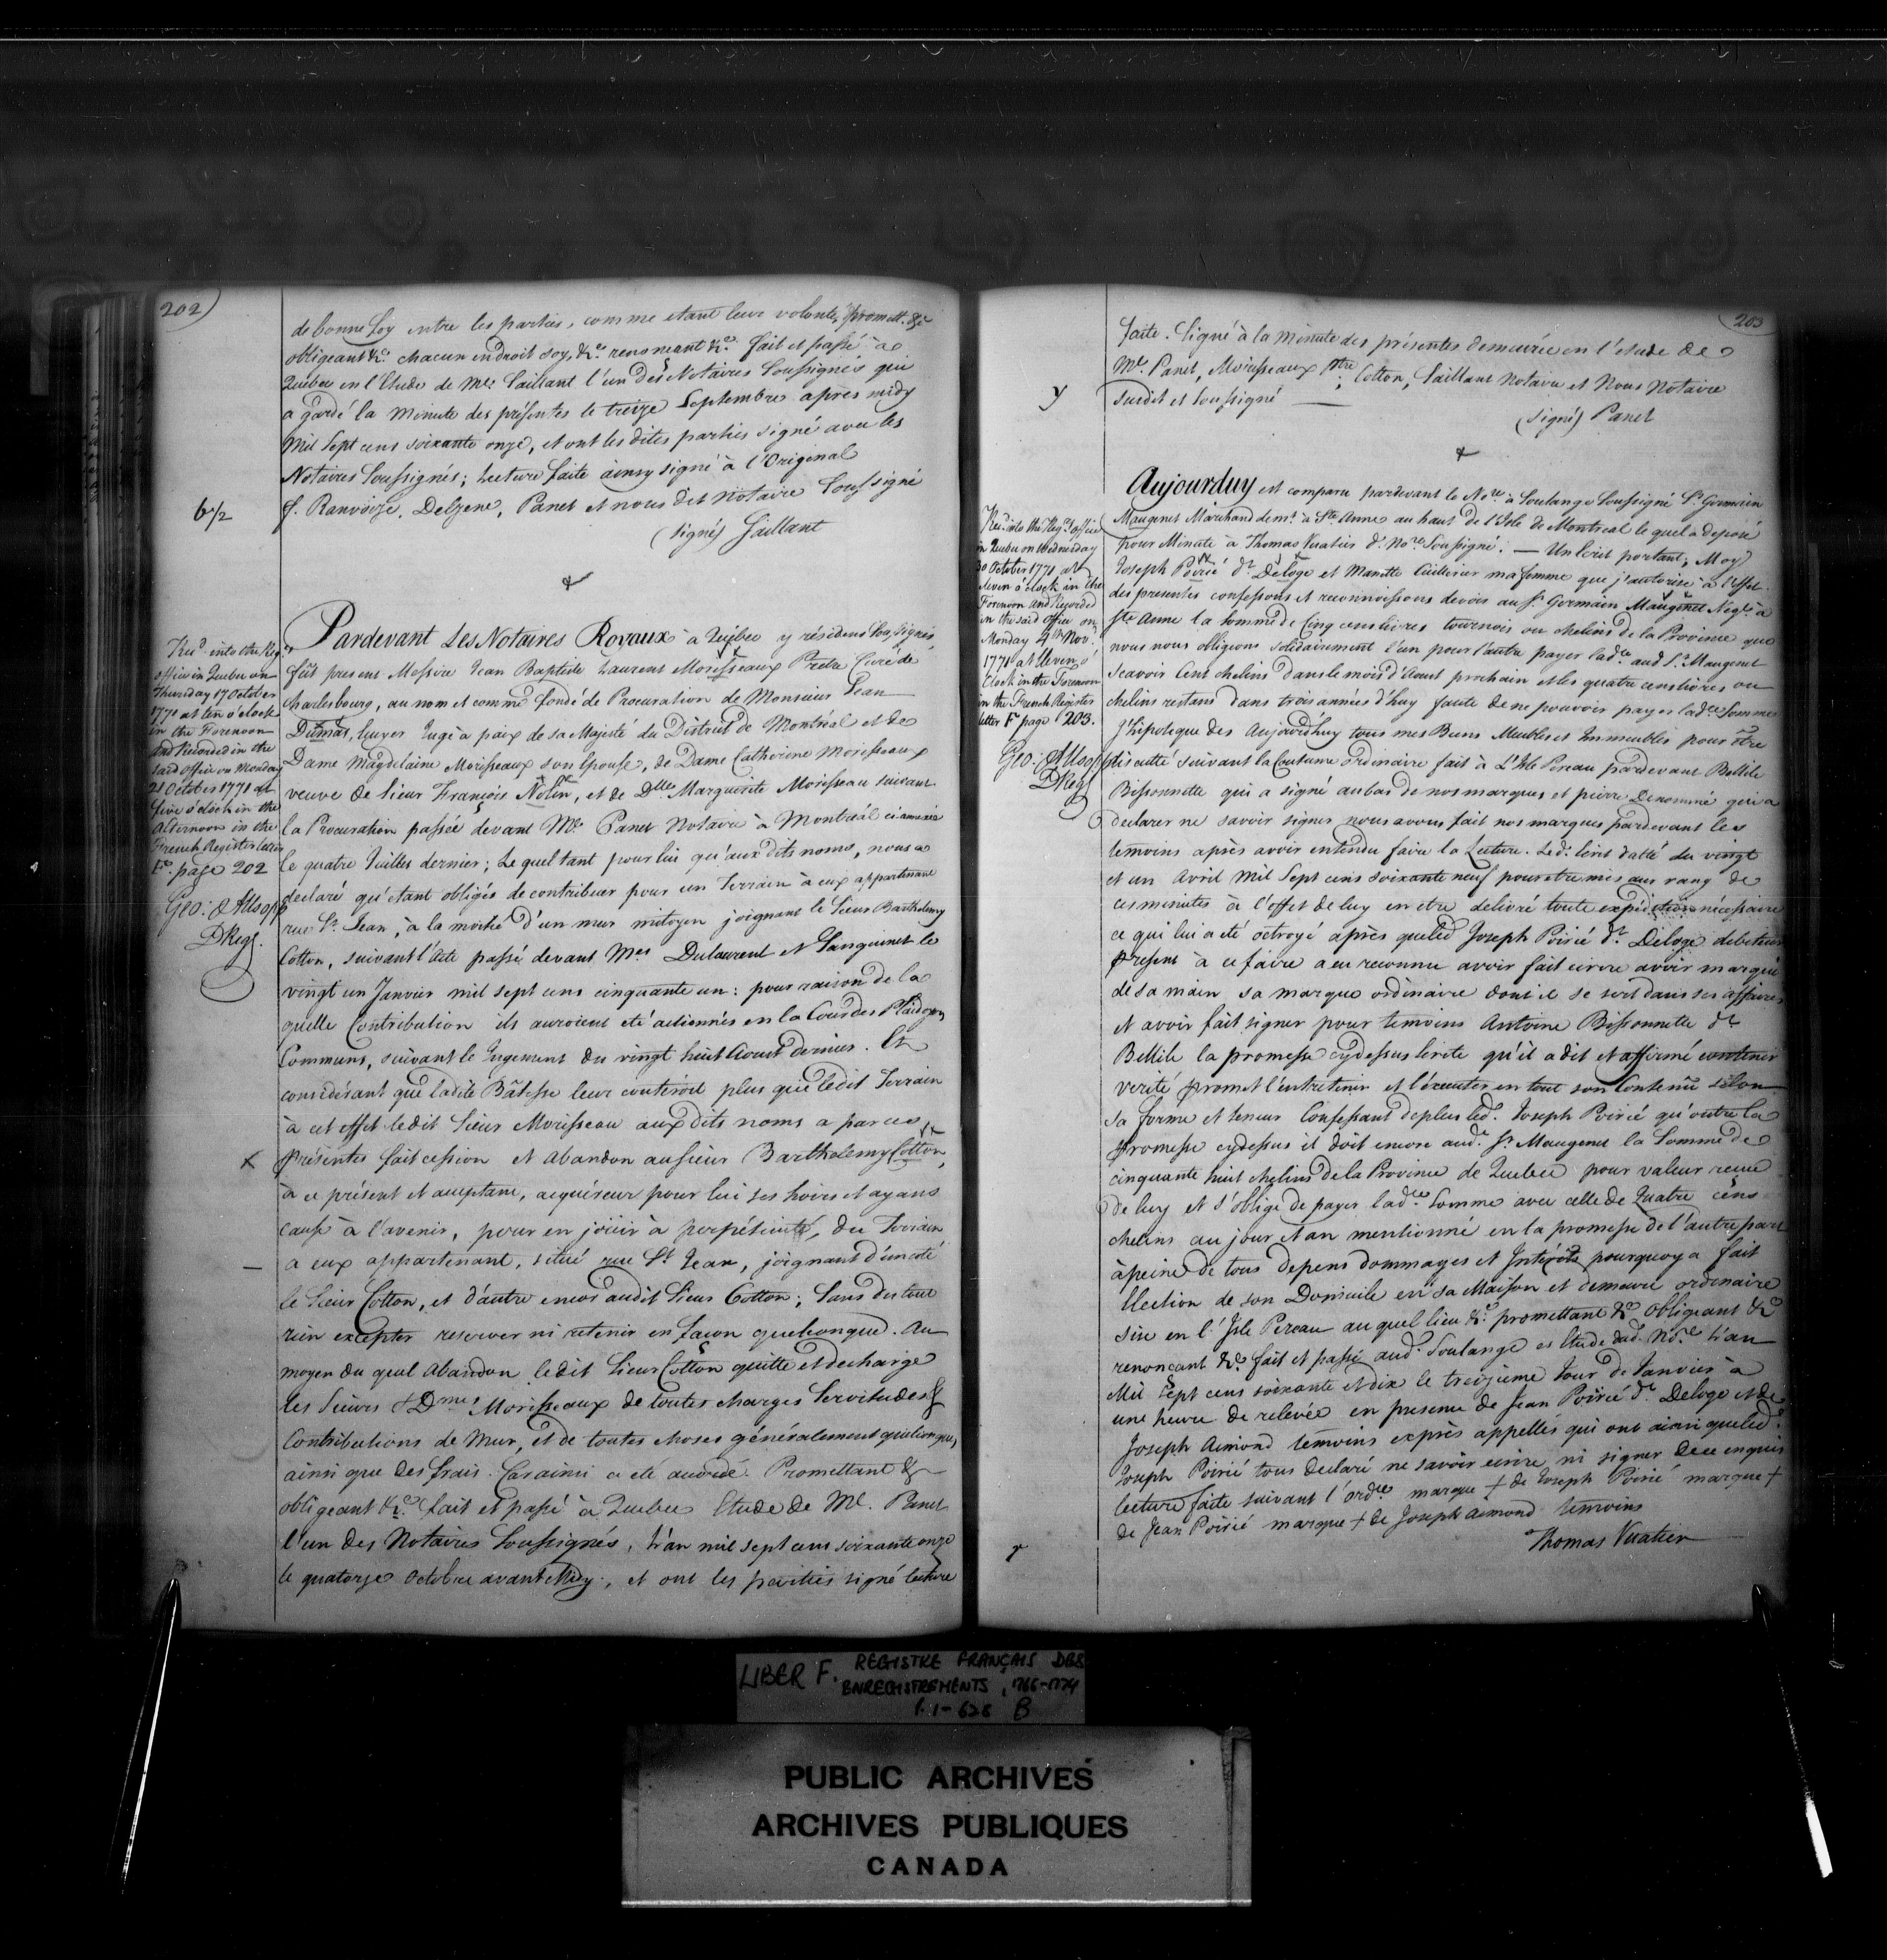 202
de bonne foy entre les parties, comme etant leur volonté, promett. &c
obligeant &c. chacun endroit soy, &c. renonceant &c. fait et passé à
Quebec en l'Etude de Me. Saillant l'un des Notaires Soussignés qui
a gardé la Minute des présentes le treize Septembre après midy
Mil Sept cens soixante onze, et ont les dites parties signé avec les
Notaires Soussignés; Lecture faite ainsy signé à l'Original
f. Ranvoizé, Delzene, Panet et nous dit Notaire Soussigné
6/2
(signé) Saillant
Pardevant Les Notaires Royaux à Québec y résidens Soussignés
fût present Messire Jean Baptiste Laurent Morisseaux Pretre Curé de
Charlesbourg, au nom et comme fondé de Procuration de Monsieur Jean
Dumas, Ecuyer Juge à paix de sa Majesté du District de Montréal et de
Dame Magdelaine Moisseaux son Epouse, de Dame Catherine Morisseaux
veuve de Sieur François Nolin, et de Dlle. Marguerite Morisseau suivant
la Procuration passée devant Me. Panet Notaire à Montréal ci annexée
le quatre Juillet dernier; Lequel tant pour lui qu'aux dits noms, nous a
declaré qu'etant obligés de contribuer pour un Terrain à eux appartenant
rue St. Jean, à la moitié d'un mur mitoyen joignant le Sieur Barthelemy
Cotton, suivant l'Acte passé devant Mes Dulaurent et Sanguinet le
vingt un Janvier mil sept cens cinquante un: pour raison de la
quelle Contribution ils auroient eté actionnés en la Cour des Plaidoyers
Communs, suivant le Jugement du vingt huit Aoust dernier. Et
considérant que ladite Bâtisse leur couteroit plus que ledit Terrain
à cet effet ledit Sieur Morisseau aux dits noms a par ces
x présentes fait cession et Abandon au Sieur Barthelemy Cotton,
à ce présent et acceptant, acquéreur pour lui ses hoirs et ayans
cause à l'avenir, pour en joüir à perpétuité, du Terrain
a eux appartenant, situé rue St. Jean, joignant d'un coté
le Sieur Cotton, et d'autre encor audit Sieur Cotton; Sans du tout
rien excepter reserver ni retenir en façon quelconque. Au
moyen du quel Abandon ledit Sieur Cotton quitte et decharge
les Sieurs & Dmes Morisseaux de toutes charges Servitudes &
Contributions de Mur, et de toutes choses généralement quelconques
ainsi que des frais. Car ainsi a eté accordé. Promettant &
obligeant &c. fait et passé à Quebec Etude de Me. Panet
l'un des Notaires Soussignés, L'an mil sept cens soixante onze
le quatorze Octobre avant Midy, et ont les parties signé lecture
Recd. into the Regs
office in Quebec on
Thursday 17 October
1771 at ten o'clock
in the Forenoon
and Recorded in the
said office on Monday
21 October 1771 at
five o'clock in the
Afternoon in the
French Register letter
F. page 202
Geo: Allsopp
DRegr.
203
faite. Signé à la Minute des présentes demeurée en l'etude de
Me. Panet, Morisseaux Ptre; Cotton, Saillant Notaire et Nous Notaire
y
Susdit et Soussigné
(signé) Panet
Aujourduy est comparu pardevant le Nore. à Soulange Soussigné Sr. Germain
Maugenet Marchand demt. à Ste Anne au haut de l'Isle de Montreal le quel a deposé
pour Minute à Thomas Vuatier d. Nore Soussigné. — Un Ecrit portant; Moy
Joseph Poirié dt. Deloge et Manette Cuillerier ma femme que j'autorise à l'effet
des presentes confessons et reconnoissons devoir au Sr. Germain Maugenet Negt. à
Ste Anne la Somme de Cinq cens livres tournois ou chelins de la Province que
nous nous obligeons solidairement l'un pour l'autre payer ladte. aud Sr. Maugenet
Scavoir Cent chelins dans le mois d'Aoust prochain et les quatre cens livres ou
chelins restans dans trois années d'huy faute de ne pouvoir payer ladte. Somme
J'hipoteque des Aujourdhuy tous mes Biens Meubles et Immeubles pour être
discutté suivant la Coutume ordinaire fait à L'Isle Pereau pardevant Bellile
Bissonnette qui a signé au bas de nos marques et pierre Denommé qui a
declarer ne savoir signer nous avons fait nos marques pardevant les
temoins après avoir entendu faire la Lecture. Led. Ecrit datté du vingt
et un Avril mil Sept cens soixante neuf pour etre mis au rang de
ces minutes à l'effet de luy en etre delivré toute expédition nécessaire
ce qui lui a eté octroyé après que led Joseph Poirié dt. Deloge debiteur
present à ce faire a eu reconnu avoir fait ecrire avoir marqué
de sa main sa marque ordinaire dont il se sert dans ses affaires
et avoir fait signer pour temoins Antoine Bissonnette dt.
Bellile la promesse cydessus ecrite qu'il a dit et affirmé contenir
verité promet l'entretenir et l'éxecuter en tout son Contenû selon
sa forme et teneur Confessant deplus led. Joseph Poirié qu'outre la
promesse cydessus il doit encore aud. Sr. Maugenet la Somme de
cinquante huit chelins de la Province de Quebec pour valeur recue
de luy et s'oblige de payer ladte. Somme avec celle de Quatre cens
chelins au jour et an mentionné en la promesse de l'autre part
à peine de tous depens dommages et Intérêts pourquoy a fait
Election de son Domicile en sa Maison et demeure ordinaire
sise en l'Isle Pereau au quel lieu &c. promettant &c obligeant &c
renoncant &c. fait et passé aud. Soulange es Etude dud. Nore. L'an
Mil Sept cens soixante et dix le treizieme Jour de Janvier à
une heure de relevée en presence de Jean Poirié dt. Deloge et de
Joseph Aimond temoins exprès appellés qui ont ainsi que led.
Joseph Poirié tous declaré ne savoir ecrire ni signer de ce enquis
lecture faite suivant l'ordce. marque + de Joseph Poirié marque +
de Jean Poirié marque + de Joseph Aimond temoins
Thomas Vuatier
Recd. into the Regr. office
in Quebec on Wednesday
30 October 1771 at
eleven o'clock in the
Forenoon and Recorded
in the said office on
Monday 4th Novr.
1771 at Eleven o'
Clock in the Forenoon
in the French Register
letter F. page 203.
Geo: Allsopp
DRegr
LIBER F. REGISTRE FRANÇAIS DES
ENREGISTREMENTS, 1766-1774
P. 1-628 B
PUBLIC ARCHIVES
ARCHIVES PUBLIQUES
CANADA